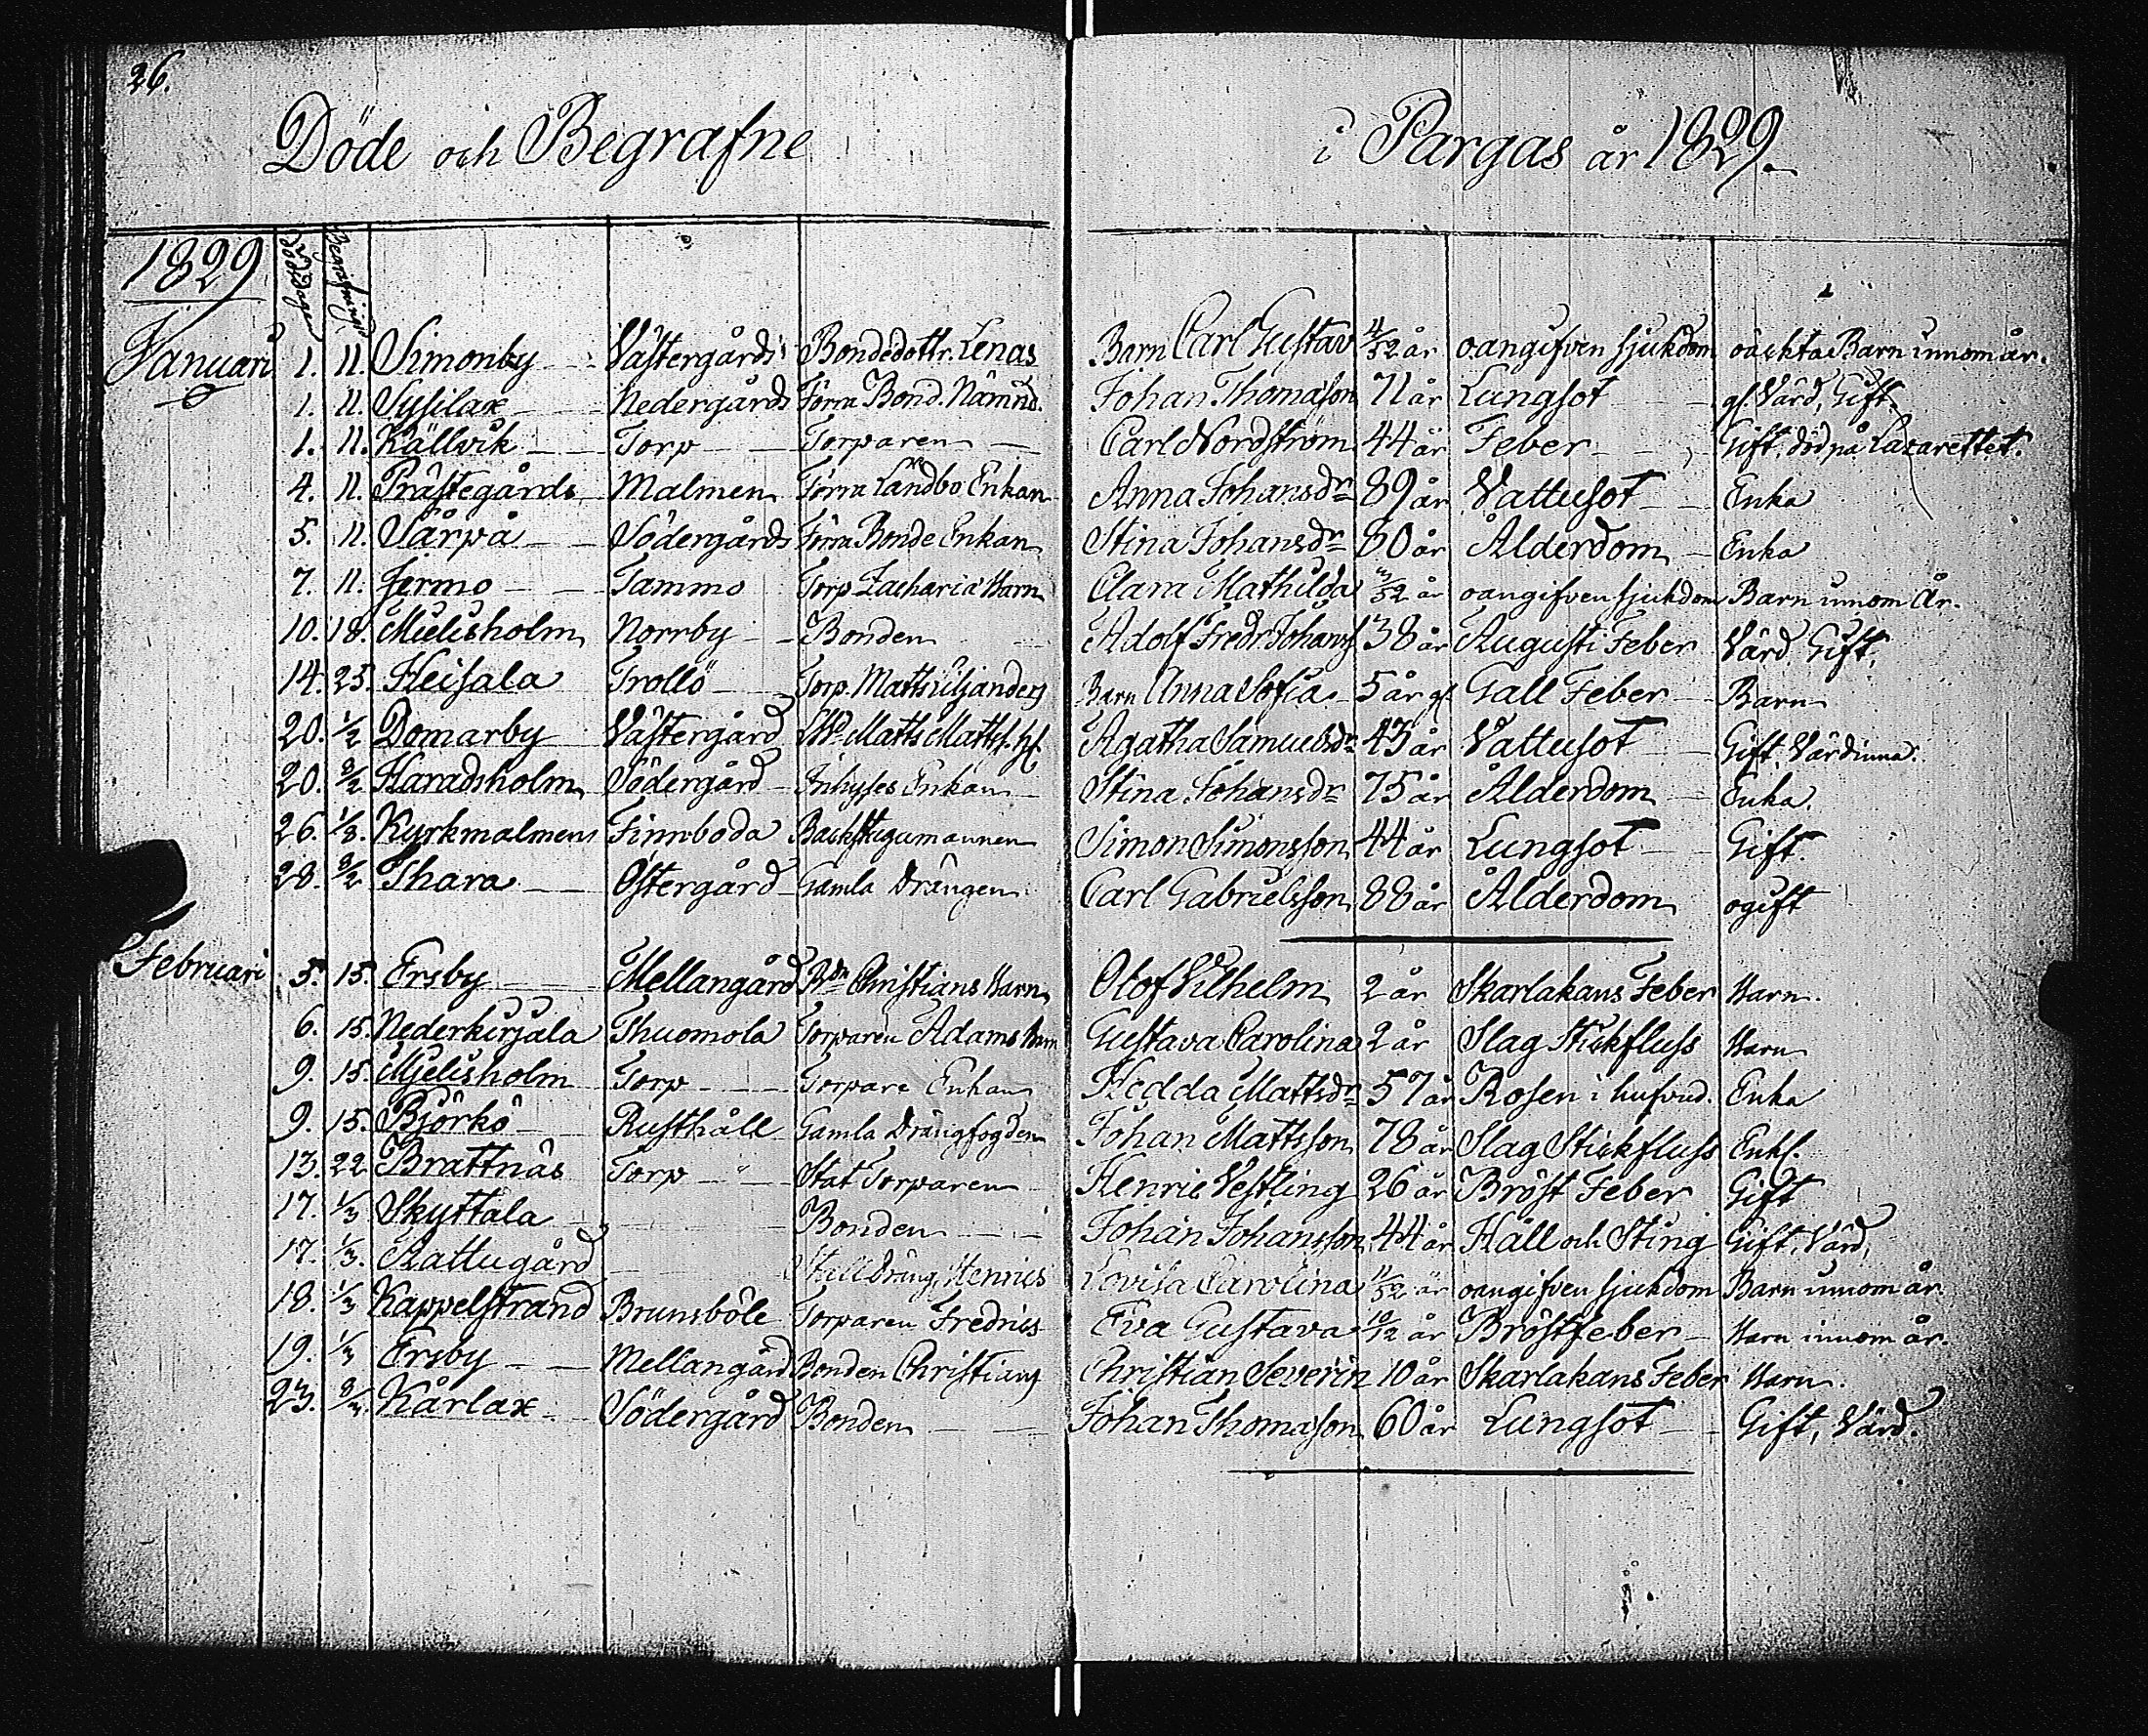 26.
Döde och Begrafne i Pargas år 1829.
1829 Döddagen Begrafnings
Januari 1. 11. Simonby Västergårds Bondedottr. Lenas Barn Carl Gustav 4/52 år oangifven sjukdom oäckta Barn innom år.
1. 11. Sysilax Nedergårds Förra Bond. Nämnd. Johan Thomasson 71 år Lungsot gl. Värd, Gift.
1. 11. Källvik Torp Torparen Carl Nordström 44 år Feber Gift, död på Lazarettet.
4. 11. Prästegårds Malmen Förra Landbo Enkan Anna Johansdr 89 år Vattusot Enka
5. 11. Sårpå Södergårds Förra Bonde Enkan Stina Johansdr 80 år Ålderdom Enka
7. 11. Jermo Tammo Torp. Zacharia Barn Clara Mathilda /52 år oangifven sjukdom Barn innom År.
10. 18. Mielisholm Norrby Bonden Adolf Fredr. Johanss 38 år Augusti Feber Värd, Gift.
14. 25. Heisala Trollö Torp. Matts Liljanders Barn Anna Sofia 5 år gl. Gall Feber Barn
20. 1/2 Domarby Västergård Matts Mattss. Agatha Samuelsdr 43 år Vattusot Gift. Värdinna.
20. 8/2 Haradsholm Södergård Inhyses Enkan Stina Johansdr 75 år Ålderdom Enka.
26. 1/8. Kyrkmalmens Finnboda Backstugumannen Simon Simonsson 44 år Lungsot Gift.
28. 8/2 Thara Östergård Gamla Drängen Carl Gabrielsson 88 år Ålderdom ogift
Februari 5. 15. Ersby Mellangård Bdn Christians Barn Olof Vilhelm 2 år Skarlakans Feber Barn.
6. 15. Nederkirjala Thuomola Torparen Adams Barn Gustava Carolina 2 år Slag Stickfluss Barn
9. 15. Mjelisholm Torp Torpare Enkan Hedda Mattsdr 57 år Rosen i hufvud. Enka
9. 15. Björkö Rusthåll Gamla Drängfogden Johan Mattsson 78 år Slag Stickfluss Enkl.
13. 22 Brattnäs Torp Stat Torparen Henric Vestling 26 år Bröst Feber Gift
17. 1/3 Skyttala Bonden Johan Johansson 44 år Håll och Sting Gift, Värd,
17. 1/3. Rattugård Stalldräng. Henrics Lovisa Carolina 11/52 år oangifven sjukdom Barn innom år.
18. 1/3 Kappelstrand Brunsböle Torparen Fredrics Eva Gustava 10/12 år Bröstfeber Barn innom år.
19. 1/3 Ersby Mellangård Bonden Christians Christian Severin 10 år Skarlakans Feber Barn.
23. Kårlax Södergård Bonden Johan Thomasson 60 år Lungsot Gift, Värd.